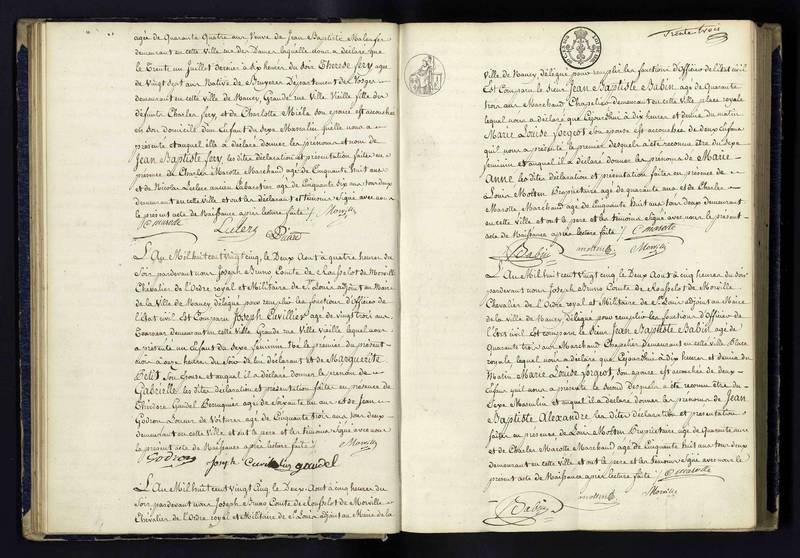 agée de Quarante Quatre ans Veuve de Jean Baptiste
demeurant en cette Ville rue des Dames laquelle nous a déclaré que
le Trente un Juillet dernier à dix heures du soir Therese fery agée
de Vingt sept ans Native de Bruyeres Département des Vosges
demeurant en cette Ville de Nancy, Grande rue Ville Vieille fille des
défunts Charles fery, et de Charlotte Miele son épouse est accouchée
en son domicile d'un Enfant du Sexe Masculin qu'elle nous a
présenté et auquel elle a déclaré donner les prénoms et nom de
Jean Baptiste fery, les dites déclaration et présentation faites en
présence de Charles Marotte Marchand agé de Cinquante huit ans
et de Nicolas Leclerc ancien agé de Cinquante six ans tous deux
demeurant en cette Ville et ont les déclarant et Témoins Signé avec nous
le présent acte de Naissance après lecture faite /. Morville
C marotte Leclerc
L'An Mil huit cent Vingt cinq, le Deux Aout à quatre heures du
Soir pardevant nous Joseph Bruno Comte de Rousselot de Morville
Chevalier de l'Ordre royal et Militaire de St Louis adjoint au Maire
de la Ville de Nancy délégué pour remplir les fonctions d'Officier de
l'Etat civil Est Comparu Joseph Cuvillier agé de vingt trois ans
demeurant en cette Ville Grande rue Ville Vieille lequel nous
a présenté un Enfant du Sexe féminin né le premier du présent
mois à onze heures du Soir de lui déclarant et de Marguerite
Petit son épouse et auquel il a déclaré donner le prénom de
Gabrielle les dites déclaration et présentation faites en présence de
Théodore Gaudel Perruquier agé de Soixante un ans et de Jean
Godron Loueur de Voitures agé de Cinquante trois ans tous deux
demeurant en cette Ville et ont le père et les témoins Signé avec nous
le présent acte de Naissance après lecture faite /. Morville
Godron Joseph Cuvillier gaudel
L'An Mil huit cent Vingt cinq le Deux Aout à cinq heures du
Soir pardevant nous Joseph Bruno Comte de Rousselot de Morville
Chevalier de l'Ordre royal et Militaire de St Louis adjoint au Maire de la
Trente trois
Ville de Nancy délégué pour remplir les fonctions d'Officier de l'Etat civil
Est Comparu le sieur Jean Baptiste Babin agé de Quarante
trois ans Marchand Chapelier demeurant en cette Ville place royale
lequel nous a déclaré que Cejourd'hui à dix heures et demie du matin
Marie Louise Jorgeot Son épouse est accouchée de deux Enfans
qu'il nous a présenté le premier desquels a été reconnu être du Sexe
féminin et auquel il a déclaré donner les prénoms de Marie
Anne les dites déclaration et présentation faites en présence de
Louis Molten Propriétaire agé de quarante ans et de Charles
Marotte Marchand agé de Cinquante huit ans tous deux demeurant
en cette Ville et ont le père et les témoins Signé avec nous le présent
acte de Naissance après lecture faite /. C marotte
Babin molten Morville
L'An Mil huit cent Vingt cinq le Deux Aout à cinq heures du Soir
pardevant nous Joseph Bruno Comte de Rousselot de Morville
Chevalier de l'Ordre royal et Militaire de St Louis adjoint au Maire
de la Ville de Nancy délégué pour remplir les fonctions d'Officier de
l'Etat civil Est comparu le Sieur Jean Baptiste Babin agé de
Quarante trois ans Marchand Chapelier demeurant en cette Ville Place
royale, lequel nous a déclaré que Cejourd'hui à dix heures et demie du
Matin Marie Louise Jorgeot, Son épouse est accouchée de deux
Enfans qu'il nous a présenté le Second Desquels a été reconnu être du
Sexe Masculin et auquel il a déclaré donner les prénoms de Jean
Baptiste Alexandre les dites déclaration et présentation
faites en présence de Louis Molten Propriétaire agé de Quarante ans
et de Charles Marotte Marchand agé de Cinquante huit ans tous deux
demeurant en cette Ville et ont le père et les témoins Signé avec nous le
présent acte de Naissance après lecture faite /. C marotte
Babin molten Morville